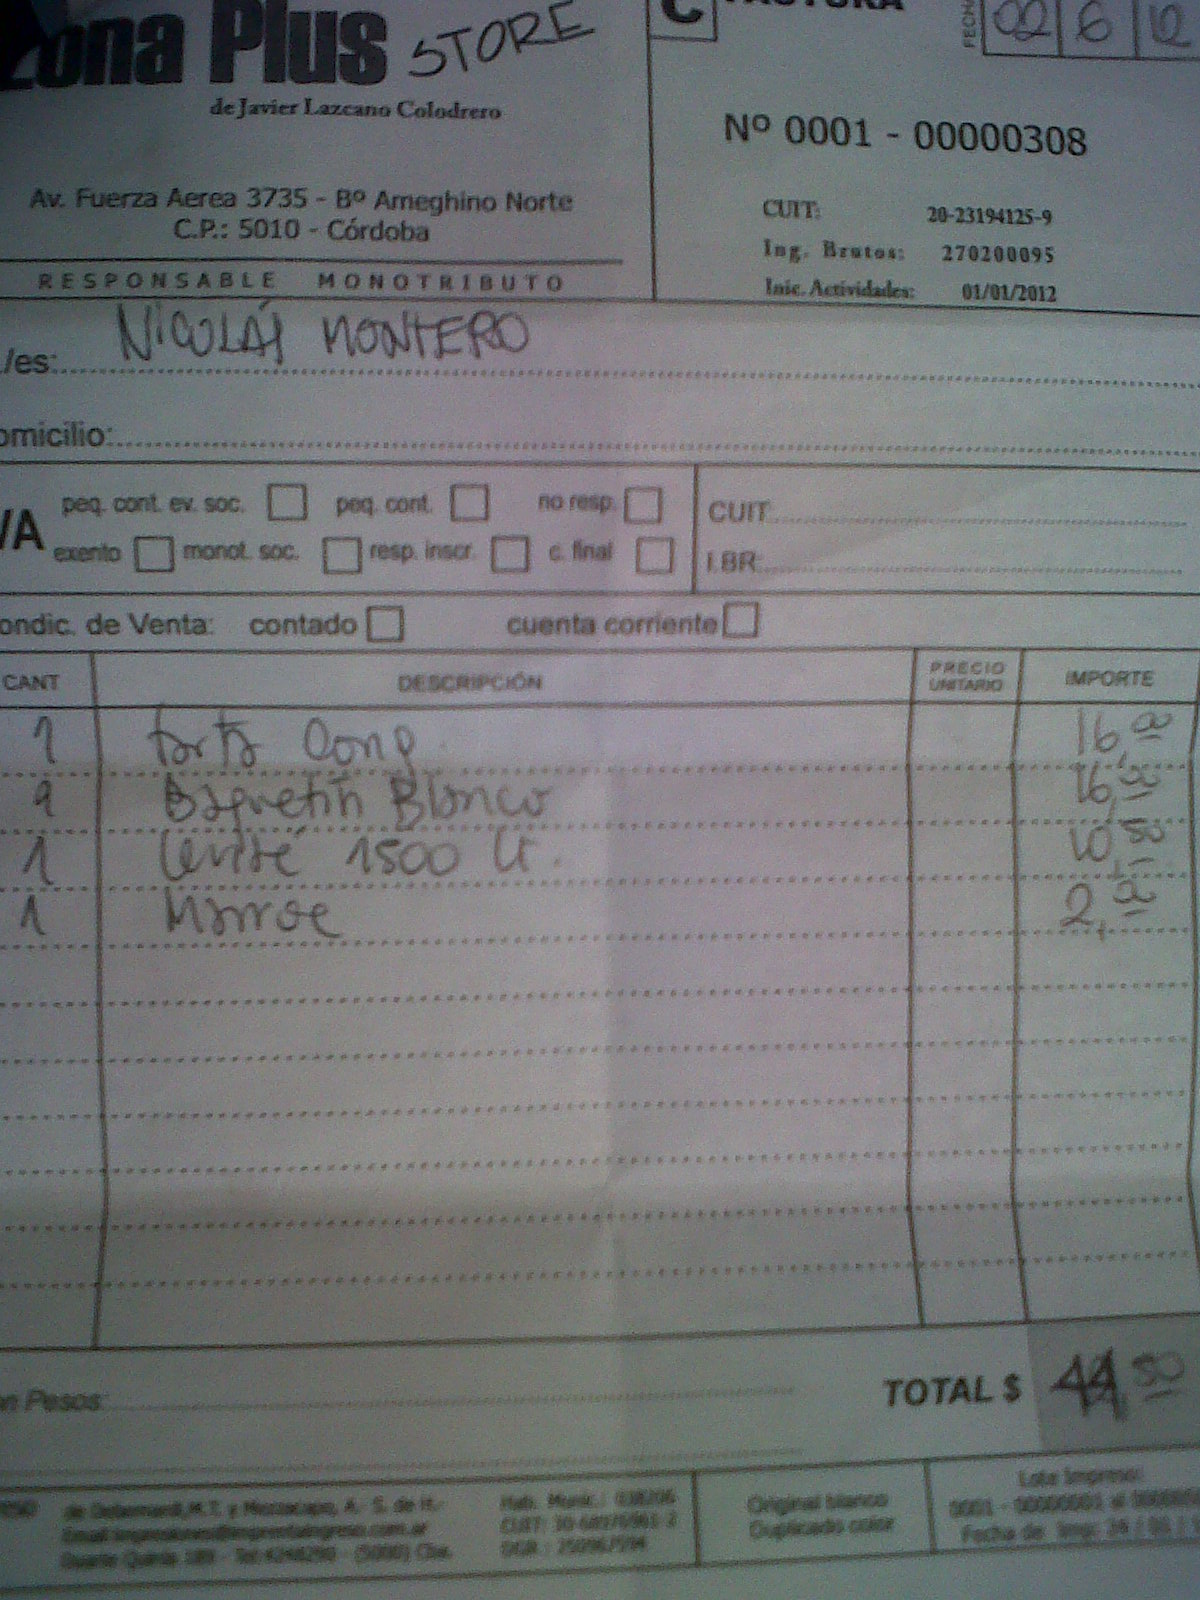 Zona Plus STORE
de Javier Lazcano Colodrero
Av. Fuerza Aerea 3735 - Bº Ameghino Norte
C.P.: 5010 - Córdoba
RESPONSABLE MONOTRIBUTO
C FACTURA
FECHA 02 6 12
Nº 0001 - 00000308
CUIT: 20-23194125-9
Ing. Brutos: 270200095
Inic. Actividades: 01/01/2012
/es: NICOLÁS MONTERO
omicilio:
VA peq. cont. ev. soc. peq. cont. no resp.
exento monot. soc. resp. inscr. c. final
CUIT
I.BR.
ondic. de Venta: contado cuenta corriente
CANT DESCRIPCIÓN PRECIO UNITARIO IMPORTE
1 torta Cong. 16,00
Baguetín Blanco 16,00
1 Levité 1500 Lt. 10,50
1 2,00
n Pesos:
TOTAL $ 44,50
de Debernardi, M.T. y A. S. de H.-
Duarte Quirós 189 - Tel: 4248290 - (5000) Cba.
Hab. Munic.:
CUIT:
DGR :
Original blanco
Duplicado color
Lote Impreso:
0001 - 00000001 al
Fecha de Imp: